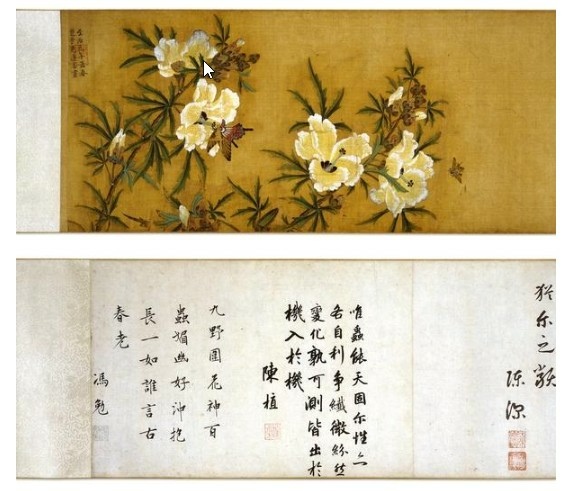 尔之歎
陈深
唯蟲能天固尔性
各自利爭纖微紛然
變化孰可測皆出於
機入於機
陳植
九野花神百
蟲媚幽好沖抱
長一如誰言古
春老
馮勉